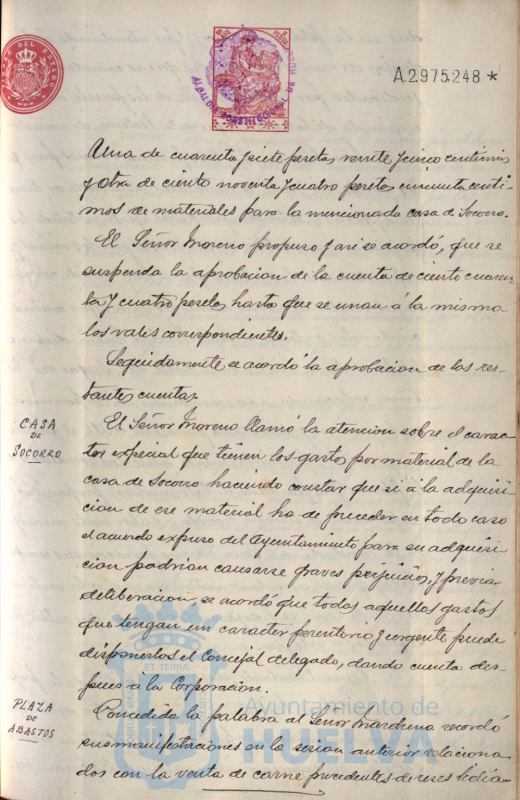 A.2975.248*
Una de cuarenta y siete pesetas veinte y cinco centimos
y otra de ciento noventa y cuatro pesetas cincuenta centi-
mos de materiales para la mencionada casa de Socorro.
El Señor Moreno propuso y asi se acordó, que se
suspenda la aprobacion de la cuenta de ciento cuaren-
ta y cuatro pesetas, hasta que se unan á la misma
los vales correspondientes.
Seguidamente se acordó la aprobacion de las res-
tantes cuentas.
CASA
DE
SOCORRO
El Señor Moreno llamó la atencion sobre el carac-
ter especial que tienen los gastos por material de la
casa de Socorro haciendo constar que si á la adquisi-
cion de ese material ha de preceder en todo caso
el acuerdo expreso del Ayuntamiento para su adquisi-
cion podrian causarse graves perjuicios, y previa
deliberacion se acordó que todos aquellos gastos
que tengan un caracter perentorio y urgente puede
disponerlos el Concejal delegado, dando cuenta des-
pues á la Corporacion.
PLAZA
DE
ABASTOS
Concedida la palabra al Señor Marchena recordó
sus manifestaciones en la sesion anterior relaciona-
das con la venta de carne procedentes de reses lidia-
ET TERRÆ
Ayuntamiento de
HUELVA